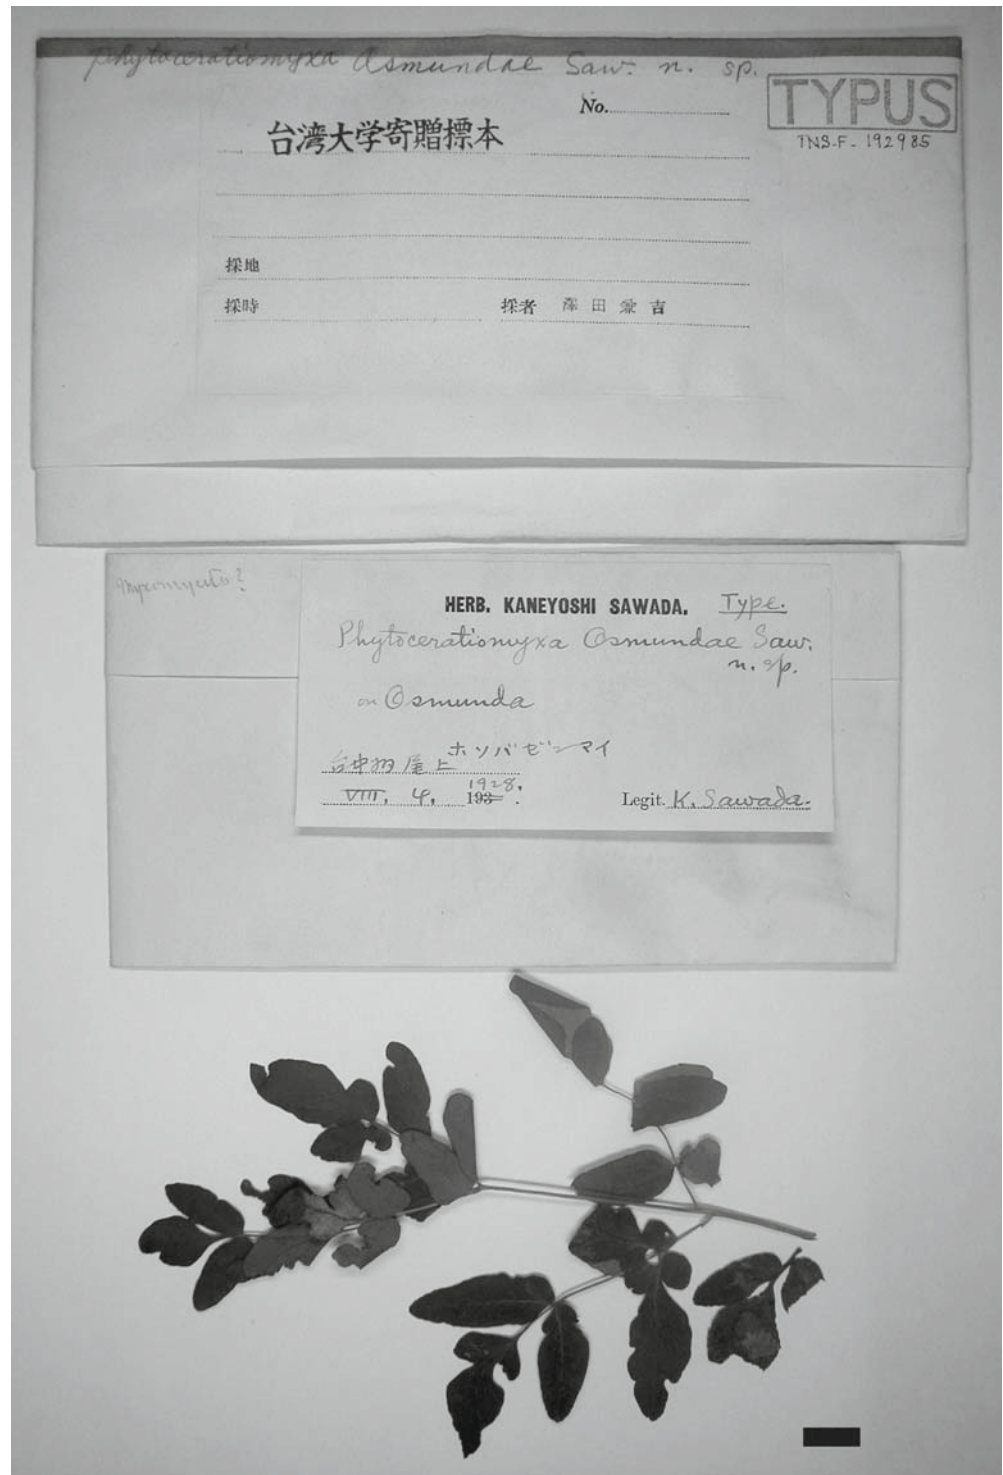 Phytoceratiomyxa Osmundae Saw. n. sp.
No.
TYPUS
TNS-F-192985
台湾大学寄贈標本
採地
採時 採者 澤田兼吉
Myxomycete?
HERB. KANEYOSHI SAWADA. Type.
Phytoceratiomyxa Osmundae Saw.
n. sp.
on Osmunda
ホソバゼンマイ
台中州 尾上
1928.
VIII. 4. 193 .
Legit. K. Sawada.